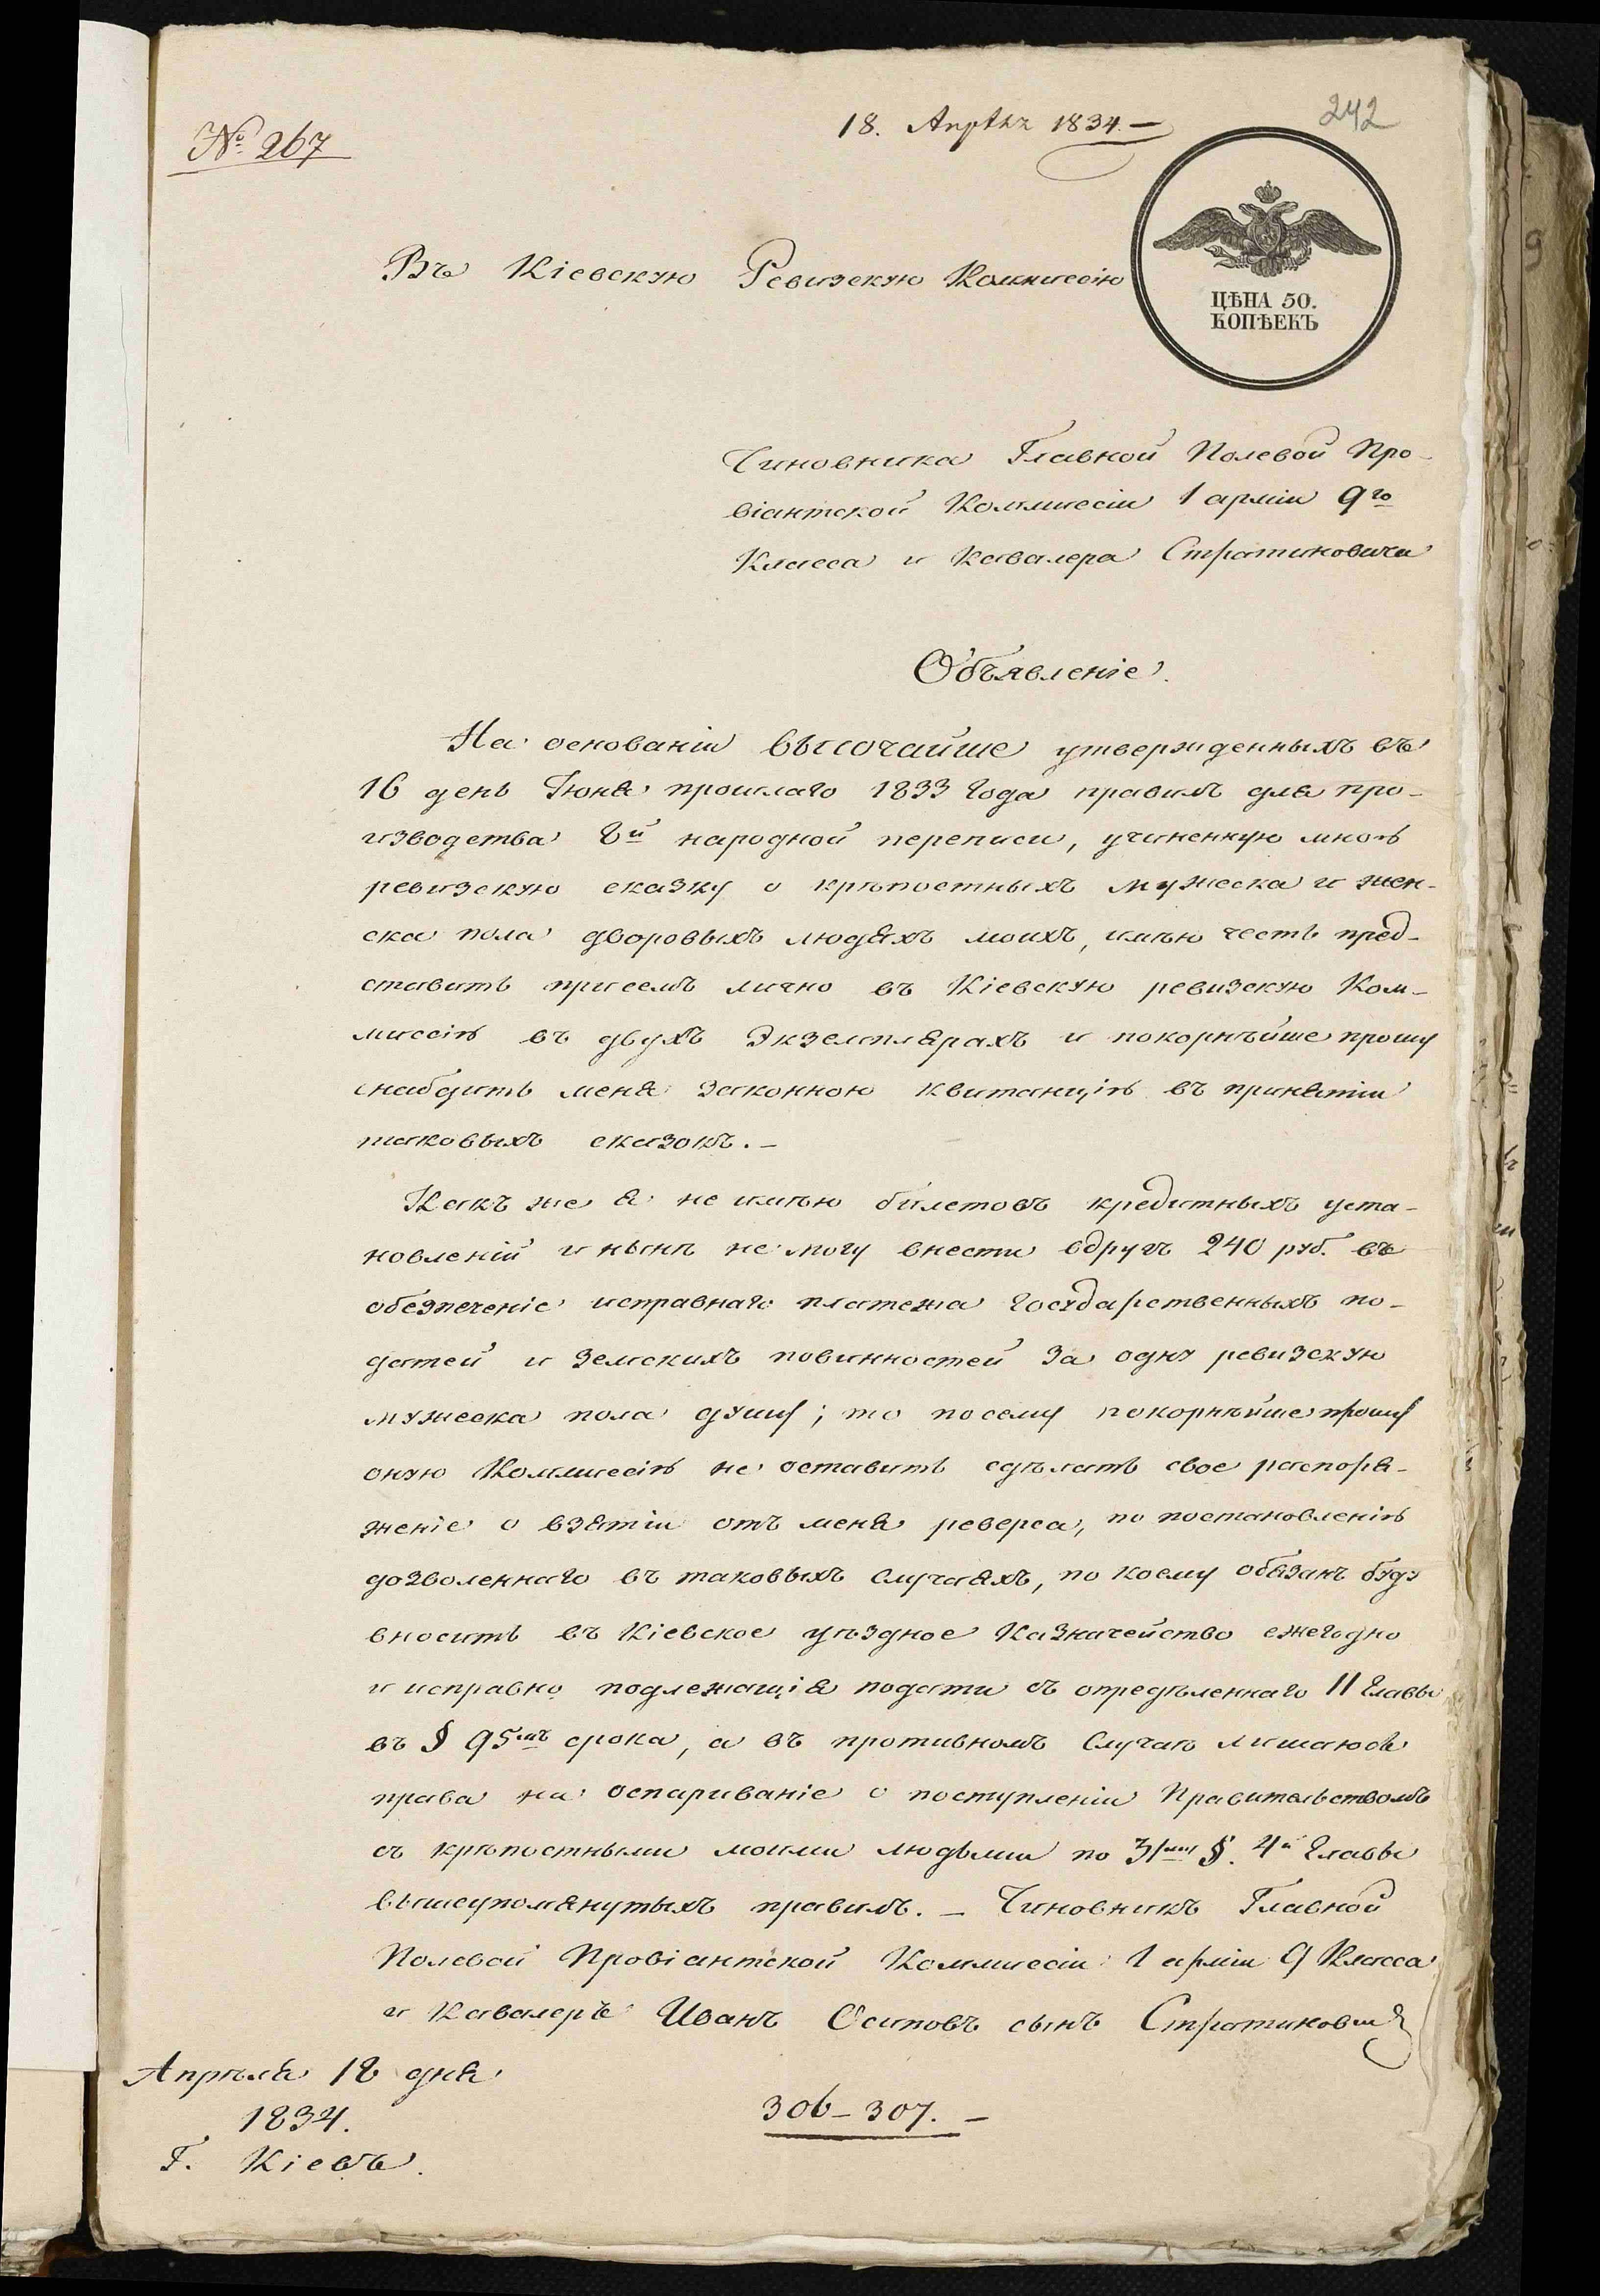 № 267
18. Апрѣля 1834.—
242
Въ Кіевскую Ревизскую Коммиссію
ЦѢНА 50.
КОПѢЕКЪ
Чиновника Главной Полевой Про-
віантской Коммиссіи 1 арміи 9го
Класса и Кавалера Стратиновича
Объявленіе.
На основаніи высочайше утвержденныхъ въ
16 день Іюня прошлаго 1833 года правилъ для про-
изводства 8й народной переписи, учиненную мною
ревизскую сказку о крѣпостныхъ мужеска и жен-
ска пола дворовыхъ людяхъ моихъ, имѣю честь пред-
ставить присемъ лично въ Кіевскую ревизскую Ком-
миссію въ двухъ экземплярахъ и покорнѣйше прошу
снабдить меня законною квитанціею въ принятіи
таковыхъ сказокъ.—
Какъ же я не имѣю билетовъ кредитныхъ уста-
новленій и нынѣ не могу внести вдругъ 240 руб. въ
обезпеченіе исправнаго платежа государственныхъ по-
датей и земскихъ повинностей за одну ревизскую
мужеска пола душу; то посему покорнѣйше прошу
оную Коммиссію не оставить сдѣлать свое распоря-
женіе о взятіи отъ меня реверса, по постановленію
дозволеннаго въ таковыхъ случаяхъ, по коему обязанъ буду
вносить въ Кіевское уѣздное Казначейство ежегодно
и исправно подлежащія подати съ опредѣленнаго 11 главы
въ § 95мъ срока, а въ противномъ случаѣ лишаюсь
права на оспариваніе о поступленіи Правительствомъ
съ крѣпостными моими людьми по 31му §. 4й главы
вышеупомянутыхъ правилъ.— Чиновникъ Главной
Полевой Провіантской Коммиссіи 1 арміи 9 Класса
и Кавалеръ Иванъ Осиповъ сынъ Стратиновичъ
Апрѣля 18 дня
1834.
Г. Кіевъ.
306–307.—